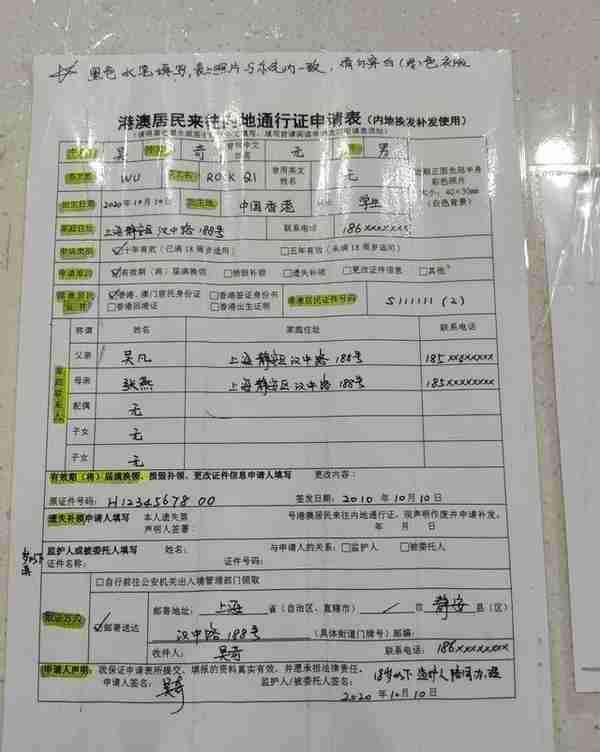 黑色水笔填写,表上照片与本先内一致,请勿穿白(浅)色衣服
港澳居民来往内地通行证申请表(内地换发补发使用)
吴 奇 曾用中文姓名 无 男
WU ROCK QI 曾用英文姓名 无
近期正面免冠半身彩色照片
大小:40×30mm
(白色背景)
出生日期 2020年10月10日 出生地 中国香港 学生
家庭住址 上海静安区汉中路188号 联系电话 186xxxxxxxx
申请类别 ☑十年有效(已满18周岁适用) □五年有效(未满18周岁适用)
申请原因 ☑有效期(将)届满换领 □损毁补领 □遗失补领 □更改证件信息 □其他
☑香港、澳门居民身份证 □香港签证身份书
□香港回港证 □香港出生证明
港澳居民证件号码 S111111(2)
家庭联系人
称谓 姓名 家庭住址 联系电话
父亲 吴凡 上海静安区汉中路188号 185xxxxxxxx
母亲 张燕 上海静安区汉中路188号 185xxxxxxxx
配偶 无
子女 无
子女 无
有效期(将)届满换领、损毁补领、更改证件信息申请人填写 更改内容:
原证件号码:H1234567800 签发日期:2010年10月10日
遗失补领申请人填写 本人遗失第 号港澳居民来往内地通行证,现声明作废并申请补发。
声明人签署: 年 月 日
监护人或被委托人填写 姓名: 与申请人的关系:□监护人 □被委托人
证件名称: 证件号码:
取证方式
□自行前往公安机关出入境管理部门领取
☑邮寄送达
邮寄地址:上海省(自治区、直辖市) / 市 静安 县(区)
汉中路188号(具体街道门牌号)邮编:
收件人:吴奇 联系电话:186xxxxxxxx
申请人声明:我保证申请表所提交、填报的资料真实有效,并愿承担法律责任。
申请人签名:吴奇 监护人/被委托人签名:18岁以下监护人陪同办理
2020年10月10日